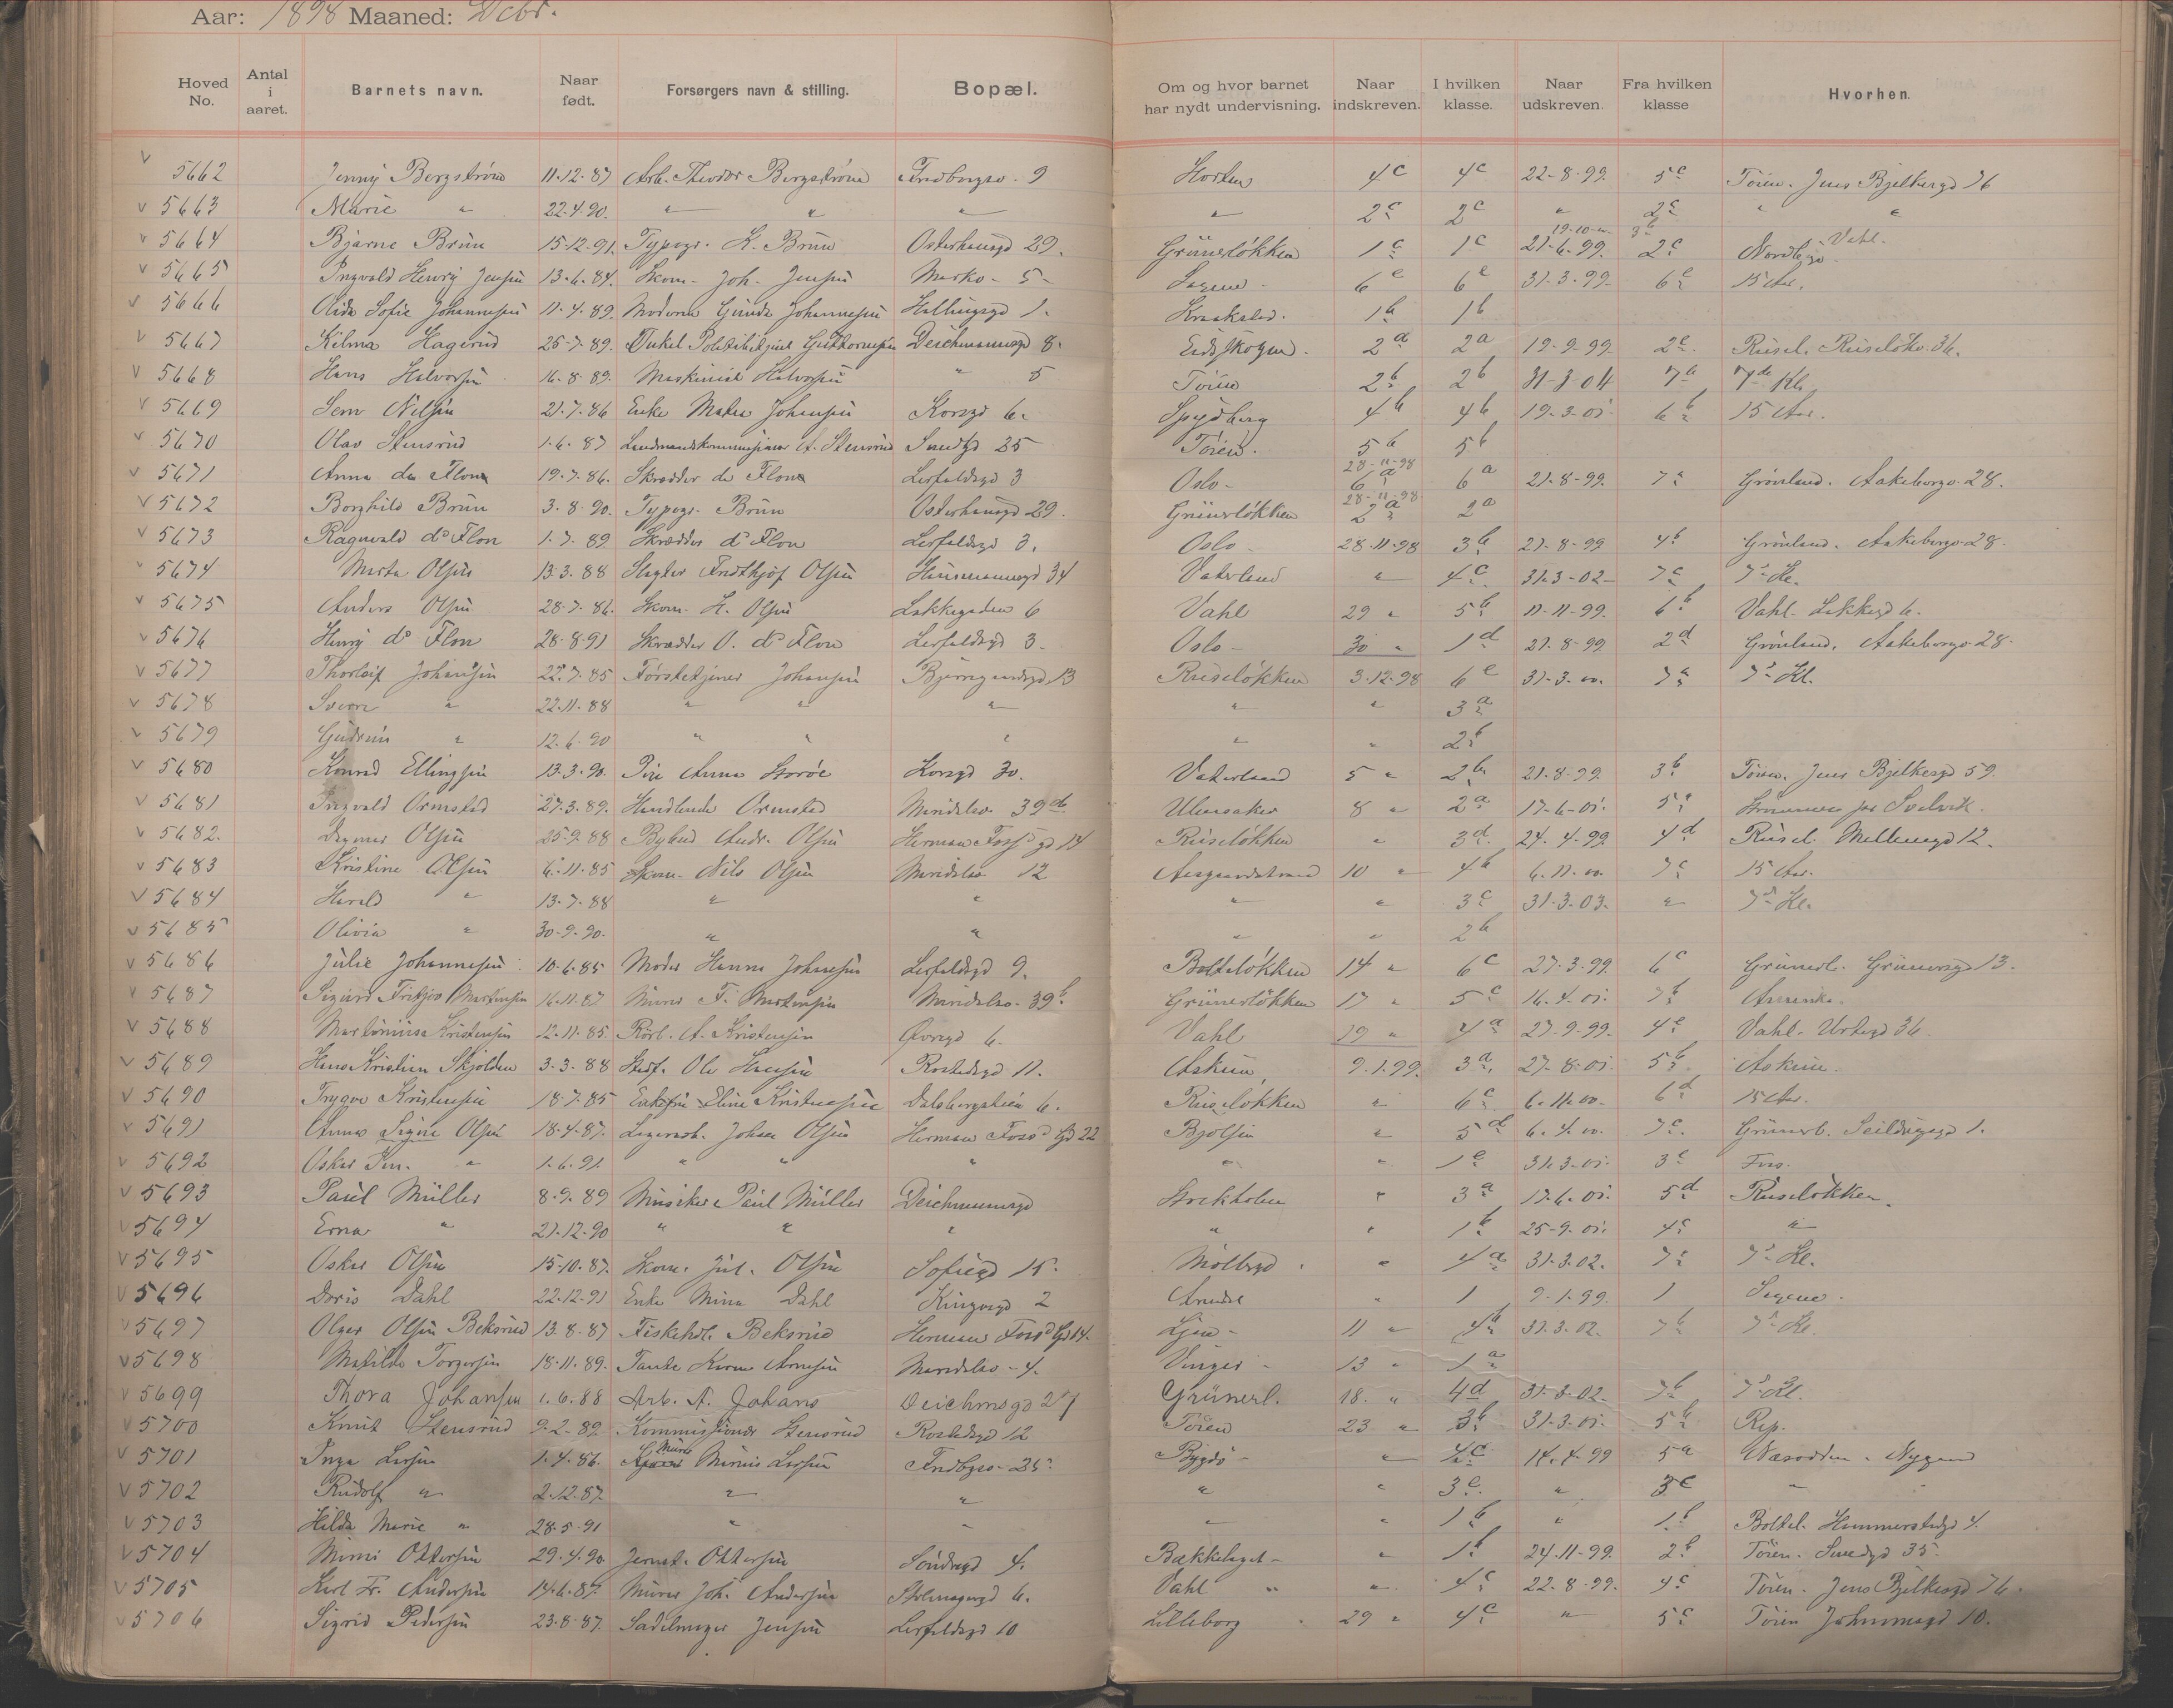 Aar: 1898 Maaned: Debr.
Hoved No. Antal i aaret. Barnets navn. Naar født. Forsørgers navn & stilling. Bopæl. Om og hvor barnet har nydt undervisning. Naar indskreven. I hvilken klasse. Naar udskreven. Fra hvilken klasse Hvorhen.
v 5662 Jenny Bergström 11.12.87 Arb. Theodor Bergström Fredborgv. 9 Horten 4c 4c 22-8-99. 5c Töien. Jens Bjelkesgd 76
v 5663 Marie " 22.4.90. " " " " 2c 2c " 2c " "
v 5664 Bjarne Brun 15-12-91. Typogr. K. Brun Osterhausgd 29. Grünerløkken 1c 1c 21-6-99. 2c Nordbygd. Vahl.
v 5665 Ingvald Henry Jensen 13-6-84. Skom. Joh. Jensen Marko- 5 Sagene 6e 6e 31-3-99. 6e 15 Aar.
v 5666 Aida Sofie Johannesen 11-4-89. Moderen Gunda Johannesen Hallingsgd 1. Kraakstad. 1b 1b
v 5667 Hagerud 25-7-89. Onkel Politibetjent Guttormsen Deichmannsgd 8. Eidskogen. 2a 2a 19-9-99. 2c Rusel. Ruseløkv. 36.
v 5668 Hans Halvorsen 16-8-89. Maskinist Halvorsen " 5 Töien 2b 2b 31-3-04 7b 7de Kl.
v 5669 Nilsen 21-7-86 Enke Johansen Korsgd 6. Spydberg 4b 4b 19-3-01. 6b 15 Aar.
v 5670 Olav Stensrud 1.6.87 A. Stensrud Smedgd 25 Töien. 5b 5b
v 5671 Anna du Flona 19-7-86. Skrædder du Flona Lerfaldsgd 3 Oslo- 28-11-98 6a 6a 21-8-99. 7a Grønland. Aakebergv. 28.
v 5672 Borghild Brun 3.8.90. Typogr. Brun Osterhausgd 29. Grünerløkken 28-11-98 2a 2a
v 5673 Ragnvald do Flon 1.7.89 Skrædder do Flon Lerfaldsgd 3. Oslo- 28-11-98 3b 21-8-99 4b Grønland. Aakebergv. 28.
v 5674 Marta Olsen 13.3.88 Slagter Fridthjof Olsen Hausmannsgd 34 Vaterland " 4c 31-3-02- 7c 7de Kl.
v 5675 Anders Olsen 28-7-86. Skom. H. Olsen Lakkegaden 6 Vahl 29 " 5b 11-11-99. 6b Vahl. Lakkegd 6.
v 5676 Henry do Flon 28-8-91 Skrædder O. do Flon Lerfaldsgd 3. Oslo- 30 " 1d 21-8-99 2d Grønland. Aakebergv. 28.
v 5677 Thorleif Johansen 22.7.85 Förstetjener Johansen Bjerregaardsgd 13 Ruseløkken 3.12.98 6e 31-3.00. 7a 7de Kl.
v 5678 Sverre " 22.11.88 " " " " " 3a
v 5679 Gudrun " 12.6.90 " " " " " 2b
v 5680 Konrad Ellingsen 13.3.90. Anna Korsgd 30. Vaterland 5 " 2b 21-8-99. 3b Töien. Jens Bjelkesgd 59.
v 5681 Ingvald Ormstad 27.3.89. Handlende Ormstad Maridalsv. 39 Ullensaker 8 " 2a 17-6-01. 5a Svelvik.
v 5682. Dagmar Olsen 25-9.88 Bybud Andr. Olsen Herman Foss's gd 14 Ruseløkken " 3d. 24.4.99 4d Rusel. Møllergd 12.
v 5683 Kristine Olsen 6.11.85 Skom. Nils Olsen Maridalsv 12 Aasgaardstrand 10 " 4b 6.11.00. 7c 15 Aar.
v 5684 Harald " 13.7.88 " " " " 3c 31.3.03. " 7de Kl.
v 5685 Olivia " 30-9-90. " " " " 2b
v 5686 Julie Johannesen 10-6.85 Moder Hanna Johnsen Lerfaldsgd 9. Bolteløkken 14 " 6c 27-3.99. 6c Grünerl. Grünersgd 13.
v 5687 Sigurd Fritjov Martinsen 16.11.87 Murer F. Martinsen Maridalsv. 39b Grünerløkken 17 " 5c 16.4.01. 7b Amerika.
v 5688 Kristensen 12.11.85. Rørl. A. Kristensen Øvregd 6. Vahl 19 " 4a 27-9-99. 4c Vahl. Urtegd 36.
v 5689 Hans Kristian Skjolden 3-3.88 Ole Hansen Rostedsgd 11. Askim 9.1.99. 3a. 27-8-01. 5b Askim.
v 5690 Trygve Kristensen 18-7.85 Enkefru Eline Kristensen Dalsbergstien 6. Ruseløkken " 6c 6-11.00- 6d 15 Aar.
v 5691 Anna Signe Olsen 18-4-87. Lagerarb. Johan Olsen Herman Foss's Gd 22 Bjølsen " 5d 6.4.00. 7c Grünerl. Seildugsgd 1.
v 5692 Oskar " 1.6.91. " " " " " 1e 31.3-01. 3c
v 5693 Paul Müller 8-9.89 Musiker Paul Müller Deichmannsgd Stockholm " 3a 17.6.01. 5d Ruseløkken.
v 5694 Erna " 21-12-90 " " " " " 1b 25-9.01. 4c "
v 5695 Oskar Olsen 15-10-87. Skom. Jul. Olsen Sofiegd 15. Møllergd. " 4a 31-3.02. 7a 7de Kl.
v 5696 Doris Dahl 22.12.91 Enke Mina Dahl Kingosgd 2 Arendal " 1 9-1-99. 1 Sagene.
v 5697 Olger Olsen Beksrud 13.8.87 Fiskehdl. Beksrud Herman Foss's Gd 14. Ljan- 11 " 4b 31.3.02. 7b 7de Kl.
v 5698 Matilde Torgersen 18-11.89. Tante Karen Arnesen Maridalsv- 4. Vinger- 13 " 1a
v 5699 Thora Johansen 1.6.88 Arb. A. Johans Deichmsgd 27 Grünerl. 18. " 4d 31-3-02. 7b 7de Kl.
v 5700 Knut Stensrud 9-2-89. Kommissionær Stensrud Rostedsgd 12 Töien 23 " 3b 31-3-01. 5b Rep.
v 5701 Inga Larsen 1.4.86. Murer Larsen Fredbgsv- 25 Bygdö- " 4c 14.4-99 5a Næsodden.
v 5702 Rudolf " 2.12.87. " " " " 3c. " 3c " "
v 5703 Hilda Marie " 28-5-91 " " " " 1b " 1b Boltel. Hammerstadgd 4.
v 5704 Mimi Ottersen 29.4.90 Jernst. Ottersen Söndregd 4. Bækkelaget- " 1b 24.11-99. 2b Töien. Smedgd 35.
v 5705 Karl Fr. Andersen 14.6.87. Murer Joh. Andersen Stolmagergd 6. Vahl " " 4c 22-8-99. 4c Töien. Jens Bjelkesgd 76.
v 5706 Sigrid Pedersen 23.8.87. Sadelmager Jensen Lerfaldsgd 10 Lilleborg 29 " 4c " 5c Töien 10.